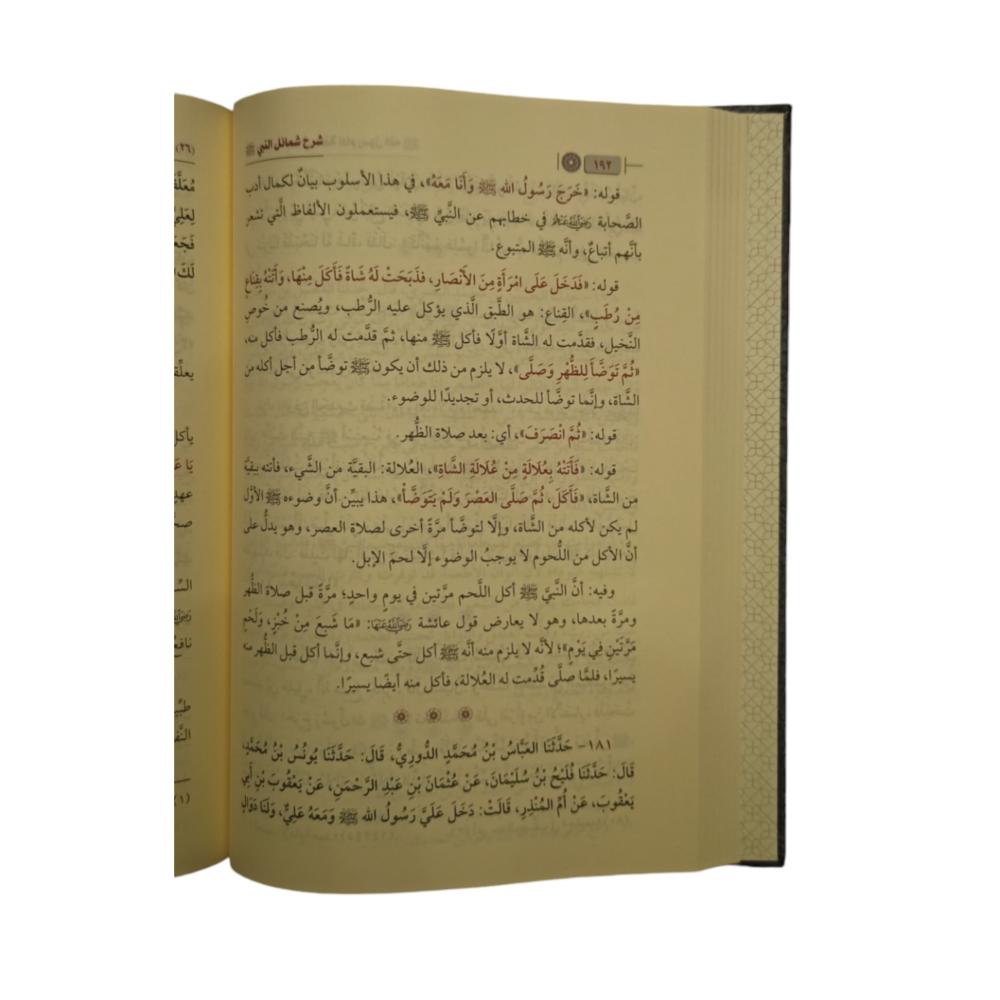 ١٩٢
شرح شمائل النبي ﷺ
قوله: «خَرَجَ رَسُولُ الله ﷺ وَأَنَا مَعَهُ»، في هذا الأسلوب بيانٌ لكمال أدب
الصَّحابة رَضِيَ اللَّهُ عَنْهُمْ في خطابهم عن النَّبيِّ ﷺ، فيستعملون الألفاظ الَّتي تشعر
بأنَّهم أتباعٌ، وأنَّه ﷺ المتبوع.
قوله: «فَدَخَلَ عَلَى امْرَأَةٍ مِنَ الأَنْصَارِ، فذَبَحَتْ لَهُ شَاةً فَأَكَلَ مِنْهَا، وَأَتَتْهُ بِقِنَاعٍ
مِنْ رُطَبٍ»، القِناع: هو الطَّبق الَّذي يؤكل عليه الرُّطب، ويُصنع من خُوصِ
النَّخيل، فقدَّمت له الشَّاة أوَّلًا فأكل ﷺ منها، ثمَّ قدَّمت له الرُّطب فأكل منه،
«ثُمَّ تَوَضَّأَ لِلظُّهْرِ وَصَلَّى»، لا يلزم من ذلك أن يكون ﷺ توضَّأ من أجل أكله من
الشَّاة، وإنَّما توضَّأ للحدث، أو تجديدًا للوضوء.
قوله: «ثُمَّ انْصَرَفَ»، أي: بعد صلاة الظُّهر.
قوله: «فَأَتَتْهُ بِعُلَالَةٍ مِنْ عُلَالَةِ الشَّاةِ»، العُلالة: البقيَّة من الشَّيء، فأتته ببقيَّة
من الشَّاة، «فَأَكَلَ، ثُمَّ صَلَّى العَصْرَ وَلَمْ يَتَوَضَّأْ»، هذا يبيِّن أنَّ وضوءه ﷺ الأوَّل
لم يكن لأكله من الشَّاة، وإلَّا لتوضَّأ مرَّةً أخرى لصلاة العصر، وهو يدلُّ على
أنَّ الأكل من اللُّحوم لا يوجبُ الوضوء إلَّا لحمَ الإبل.
وفيه: أنَّ النَّبيَّ ﷺ أكل اللَّحم مرَّتين في يومٍ واحدٍ؛ مرَّةً قبل صلاة الظُّهر
ومرَّةً بعدها، وهو لا يعارض قول عائشة رَضِيَ اللَّهُ عَنْهَا: «مَا شَبِعَ مِنْ خُبْزٍ، وَلَحْمٍ
مَرَّتَيْنِ فِي يَوْمٍ»؛ لأنَّه لا يلزم منه أنَّه ﷺ أكل حتَّى شبع، وإنَّما أكل قبل الظُّهر منه
يسيرًا، فلمَّا صلَّى قُدِّمت له العُلالة، فأكل منه أيضًا يسيرًا.
١٨١- حَدَّثَنَا العَبَّاسُ بْنُ مُحَمَّدٍ الدُّورِيُّ، قَالَ: حَدَّثَنَا يُونُسُ بْنُ مُحَمَّدٍ،
قَالَ: حَدَّثَنَا فُلَيْحُ بْنُ سُلَيْمَانَ، عَنْ عُثْمَانَ بْنِ عَبْدِ الرَّحْمَنِ، عَنْ يَعْقُوبَ بْنِ أَبِي
يَعْقُوبَ، عَنْ أُمِّ المُنْذِرِ، قَالَتْ: دَخَلَ عَلَيَّ رَسُولُ الله ﷺ وَمَعَهُ عَلِيٌّ، وَلَنَا دَوَالٍ